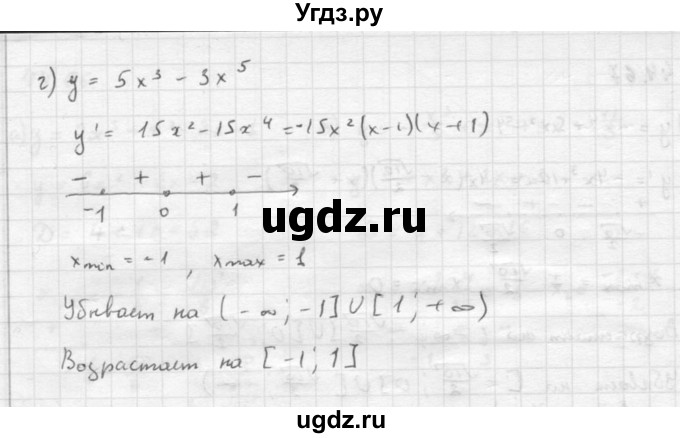 Угдз.ру
г) y = 5x³ - 3x⁵
y' = 15x² - 15x⁴ = -15x²(x-1)(x+1)
- + + -
-1 0 1
ugdz.ru
x min = -1, x max = 1
Убывает на (-∞; -1] ∪ [1; +∞)
Возрастает на [-1; 1]
ugdz.ru